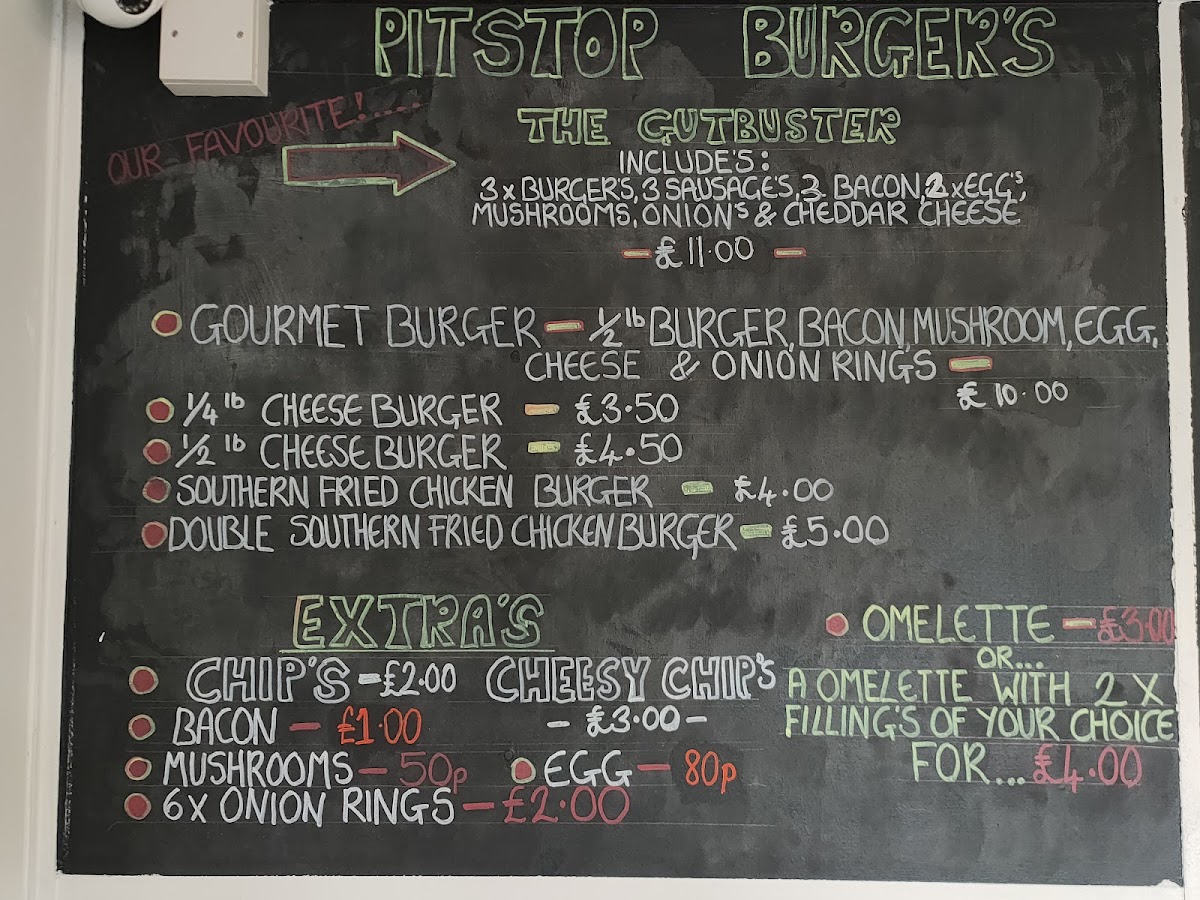 PITSTOP BURGER'S
OUR FAVOURITE!....
THE GUTBUSTER
INCLUDE'S:
3 x BURGER'S, 3 SAUSAGE'S, 3 BACON, 2 x EGG'S,
MUSHROOMS, ONION'S & CHEDDAR CHEESE
- £11.00 -
GOURMET BURGER - 1/2 lb BURGER, BACON, MUSHROOM, EGG,
CHEESE & ONION RINGS -
£10.00
1/4 lb CHEESE BURGER - £3.50
1/2 lb CHEESE BURGER - £4.50
SOUTHERN FRIED CHICKEN BURGER - £4.00
DOUBLE SOUTHERN FRIED CHICKEN BURGER - £5.00
EXTRA'S
CHIP'S - £2.00
CHEESY CHIP'S
- £3.00 -
BACON - £1.00
MUSHROOMS - 50p
EGG - 80p
6 x ONION RINGS - £2.00
OMELETTE - £3.00
OR...
A OMELETTE WITH 2 X
FILLING'S OF YOUR CHOICE
FOR... £4.00